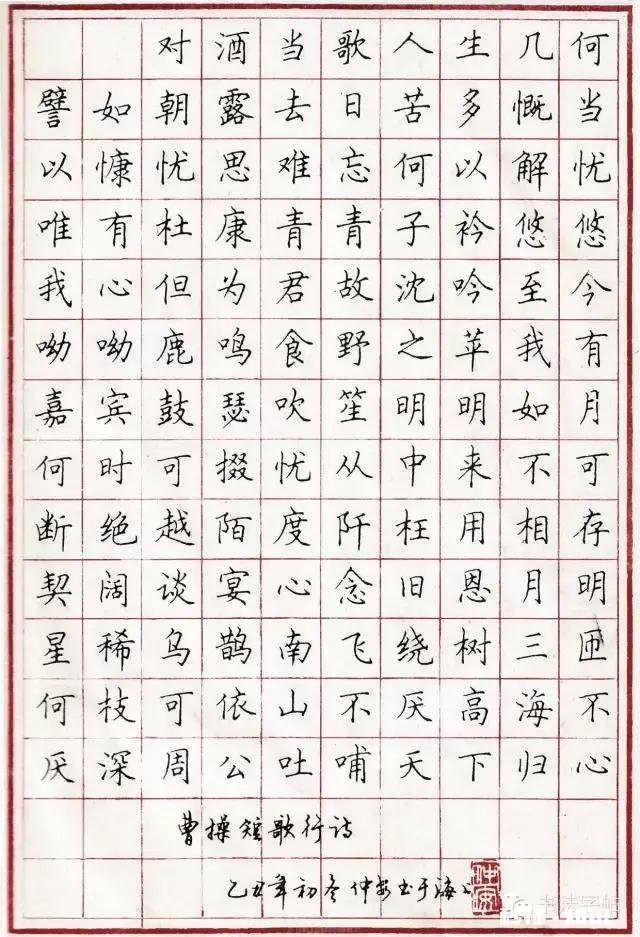 对酒当歌人生几何
譬如朝露去日苦多慨当
以慷忧思难忘何以解忧
唯有杜康青青子衿悠悠
我心但为君故沈吟至今
呦呦鹿鸣食野之苹我有
嘉宾鼓瑟吹笙明明如月
何时可掇忧从中来不可
断绝越陌度阡枉用相存
契阔谈宴心念旧恩月明
星稀乌鹊南飞绕树三匝
何枝可依山不厌高海不
厌深周公吐哺天下归心
曹操短歌行诗
乙丑年初冬仲安书于海上
书法字帖